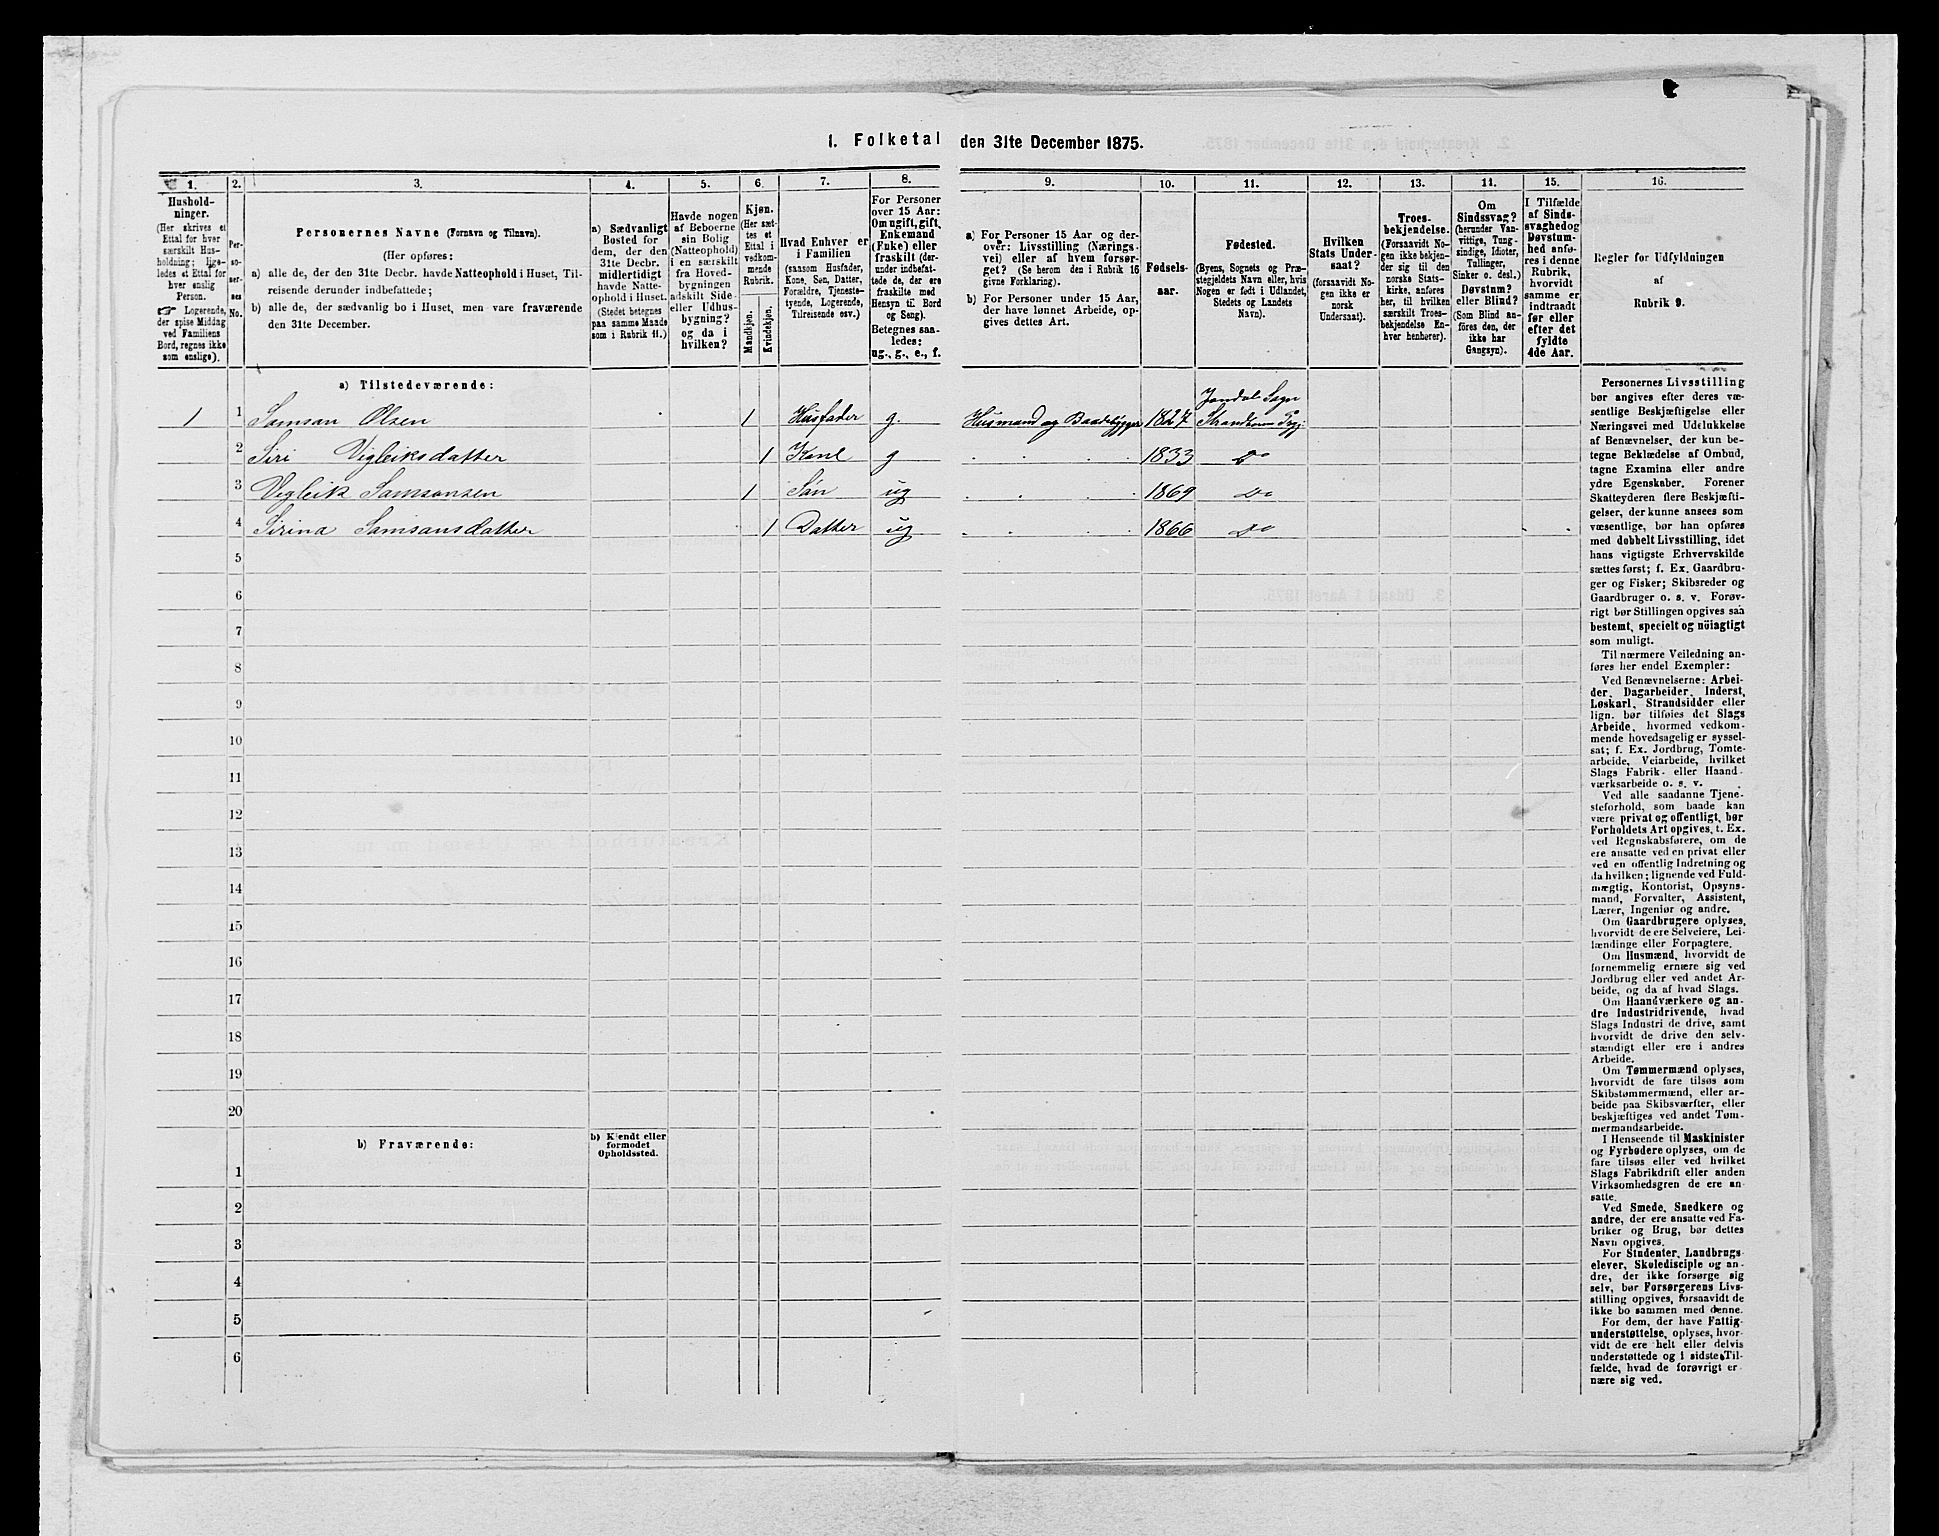 1. Folketal den 31te December 1875.
1.
Hushold-
ninger.
(Her skrives et
Ettal for hver
særskilt Hus-
holdning; lige-
ledes et Ettal for
hver enslig
Person.
☞ Logerende,
der spise Middag
ved Familiens
Bord, regnes ikke
som enslige).
2.
Per-
so-
ner-
nes
No.
3.
Personernes Navne (Fornavn og Tilnavn).
(Her opføres:
a) alle de, der den 31te Decbr. havde Natteophold i Huset, Til-
reisende derunder indbefattede;
b) alle de, der sædvanlig bo i Huset, men vare fraværende
den 31te December.
4.
a) Sædvanligt
Bosted for
dem, der den
31te Decbr.
midlertidigt
havde Natte-
ophold i Huset.
(Stedet betegnes
paa samme Maade
som i Rubrik 11.)
5.
Havde nogen
af Beboerne
sin Bolig
(Natteophold)
i en særskilt
fra Hoved-
bygningen
adskilt Side-
eller Udhus-
bygning?
og da i
hvilken?
6.
Kjøn.
(Her sæt-
tes et
Ettal i
vedkom-
mende
Rubrik.
Mandkjøn.
Kvindekjøn.
7.
Hvad Enhver er
i Familien
(saasom Husfader,
Kone, Søn, Datter,
Forældre, Tjeneste-
tyende, Logerende,
Tilreisende osv.)
8.
For Personer
over 15 Aar:
Om ugift, gift,
Enkemand
(Enke) eller
fraskilt (der-
under indbefat-
tede de, der ere
fraskilte med
Hensyn til Bord
og Seng).
Betegnes saa-
ledes:
ug., g., e., f.
9.
a) For Personer 15 Aar og der-
over: Livsstilling (Nærings-
vei) eller af hvem forsør-
get? (Se herom den i Rubrik 16
givne Forklaring).
b) For Personer under 15 Aar,
der have lønnet Arbeide, op-
gives dettes Art.
10.
Fødsels-
aar.
11.
Fødested.
(Byens, Sognets og Præ-
stegjeldets Navn eller, hvis
Nogen er født i Udlandet,
Stedets og Landets
Navn).
12.
Hvilken
Stats Under-
saat?
(forsaavidt No-
gen ikke er
norsk
Undersaat).
13.
Troes-
bekjendelse.
(Forsaavidt No-
gen ikke bekjen-
der sig til den
norske Stats-
kirke, anføres
her, til hvilken
særskilt Troes-
bekjendelse En-
hver henhører).
14.
Om
Sindssvag?
(herunder Van-
vittige, Tung-
sindige, Idioter,
Tullinger,
Sinker o. desl.)
Døvstum?
eller Blind?
(Som Blind an-
føres den, der
ikke har
Gangsyn).
15.
I Tilfælde
af Sinds-
svaghed og
Døvstum-
hed anfø-
res i denne
Rubrik,
hvorvidt
samme er
indtraadt
før eller
efter det
fyldte
4de Aar.
16.
Regler for Udfyldningen
af
Rubrik 9.
a) Tilstedeværende:
Jondal Sogn
1 1 Samson Olsen 1 Husfader g. Husmand og Baadebygger 1827 Strandbarm Pgj:
2 Siri Vigleiksdatter 1 Kone g 1833 Do
3 Vigleik Samsonsen 1 Søn ug 1869 Do
4 Sirina Samsonsdatter 1 Datter ug 1866 Do
5
6
7
8
9
10
11
12
13
14
15
16
17
18
19
20
b) Fraværende:
b) Kjendt eller
formodet
Opholdssted.
1
2
3
4
5
6
Personernes Livsstilling
bør angives efter deres væ-
sentlige Beskjæftigelse eller
Næringsvei med Udelukkelse
af Benævnelser, der kun be-
tegne Beklædelse af Ombud,
tagne Examina eller andre
ydre Egenskaber. Forener
Skatteyderen flere Beskjæfti-
gelser, der kunne ansees som
væsentlige, bør han opføres
med dobbelt Livsstilling, idet
hans vigtigste Erhvervskilde
sættes først; f. Ex. Gaardbru-
ger og Fisker; Skibsreder og
Gaardbruger o. s. v. Forøv-
rigt bør Stillingen opgives saa
bestemt, specielt og nöiagtigt
som muligt.
Til nærmere Veiledning an-
føres her endel Exempler:
Ved Benævnelserne: Arbei-
der, Dagarbeider, Inderst,
Løskarl, Strandsidder eller
lign. bør tilføies det Slags
Arbeide, hvormed vedkom-
mende hovedsagelig er syssel-
sat; f. Ex. Jordbrug, Tomte-
arbeide, Veiarbeide, hvilket
Slags Fabrik- eller Haand-
værksarbeide o. s. v.
Ved alle saadanne Tjene-
steforhold, som baade kan
være privat og offentligt, bør
Forholdets Art opgives, t. Ex.
ved Regnskabsførere, om de
ere ansatte ved en privat eller
ved en offentlig Indretning og
da hvilken; lignende ved Fuld-
mægtig, Kontorist, Opsyns-
mand, Forvalter, Assistent,
Lærer, Ingeniør og andre.
Om Gaardbrugere oplyses,
hvorvidt de ere Selveiere, Lei-
lændinge eller Forpagtere.
Om Husmænd, hvorvidt de
fornemmelig ernære sig ved
Jordbrug eller ved andet Ar-
beide, og da af hvad Slags.
Om Haandværkere og an-
dre Industridrivende, hvad
Slags Industri de drive, samt
hvorvidt de drive den selv-
stændigt eller ere i andres
Arbeide.
Om Tømmermænd oplyses,
hvorvidt de fare tilsøs som
Skibstømmermænd, eller ar-
beide paa Skibsværfter, eller
beskjæftiges ved andet Tøm-
mermandsarbeide.
I Henseende til Maskinister
og Fyrbødere oplyses, om de
fare tilsøs eller ved hvilket
Slags Fabrikdrift eller anden
Virksomhedsgren de ere an-
satte.
Ved Smede, Snedkere og
andre, der ere ansatte ved Fa-
briker og Brug, bør dettes
Navn opgives.
For Studenter, Landbrugs-
elever, Skoledisciple og an-
dre, der ikke forsørge sig
selv, bør Forsørgerens Livs-
stilling opgives, forsaavidt de
ikke bo sammen med denne.
For dem, der have Fattig-
understøttelse, oplyses, hvor-
vidt de ere helt eller delvis
understøttede og i sidste Til-
fælde, hvad de forøvrigt er-
nære sig ved.